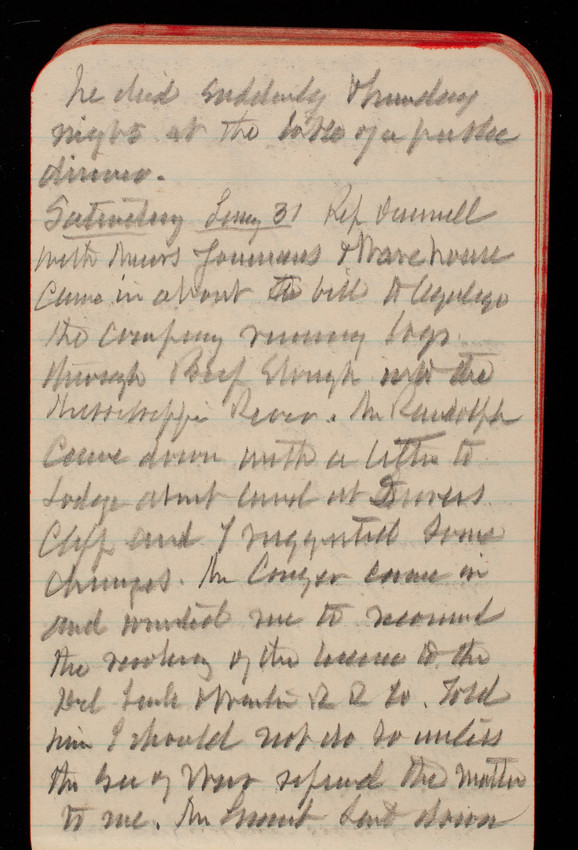 he died suddenly Thursday
night at the table of a public
dinner.
Saturday Jany 31 Rep Dunnell
with Messrs Youmans & Warehouse
came in about the bill to legalize
the company running logs
through Beef Slough into the
Mississippi River. Mr Randolph
came down with a letter to
Lodge about land at
Cliff and I suggested some
changes. Mr Conger came in
and wanted me to
the of the to the
R R Co. Told
him I should not do so unless
the Sec of War referred the matter
to me. Mr sent down